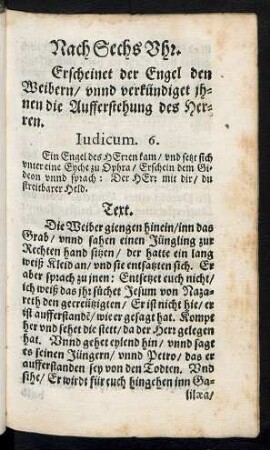 Nach Sechs Vhr.
Erscheinet der Engel den
Weibern/ vnnd verkündiget jh-
nen die Aufferstehung des Her-
ren.
Iudicum. 6.
Ein Engel des HErren kam/ vnd setzt sich
vnter eine Eyche zu Ophra/ Erschein dem Gi-
deon vnnd sprach: Der HErr mit dir/ du
streitbarer Held.
Text.
Die Weiber giengen hinein/inn das
Grab/ vnnd sahen einen Jüngling zur
Rechten hand sitzen/ der hatte ein lang
weiß Kleid an/ vnd sie entsatzten sich. Er
aber sprach zu jnen: Entsetzet euch nicht/
ich weiß das jhr süchet Jesum von Naza-
reth den gecreützigten/ Er ist nicht hie/ er
ist aufferstandē/ wie er gesagt hat. Kompt
her vnd sehet die stett/ da der Herr gelegen
hat. Vnnd gehet eylend hin/ vnnd sagt
es seinen Jüngern/ vnnd Petro/ das er
aufferstanden sey von den Todten. Vnd
sihe/ Er wirdt für euch hingehen inn Ga-
lilæa/